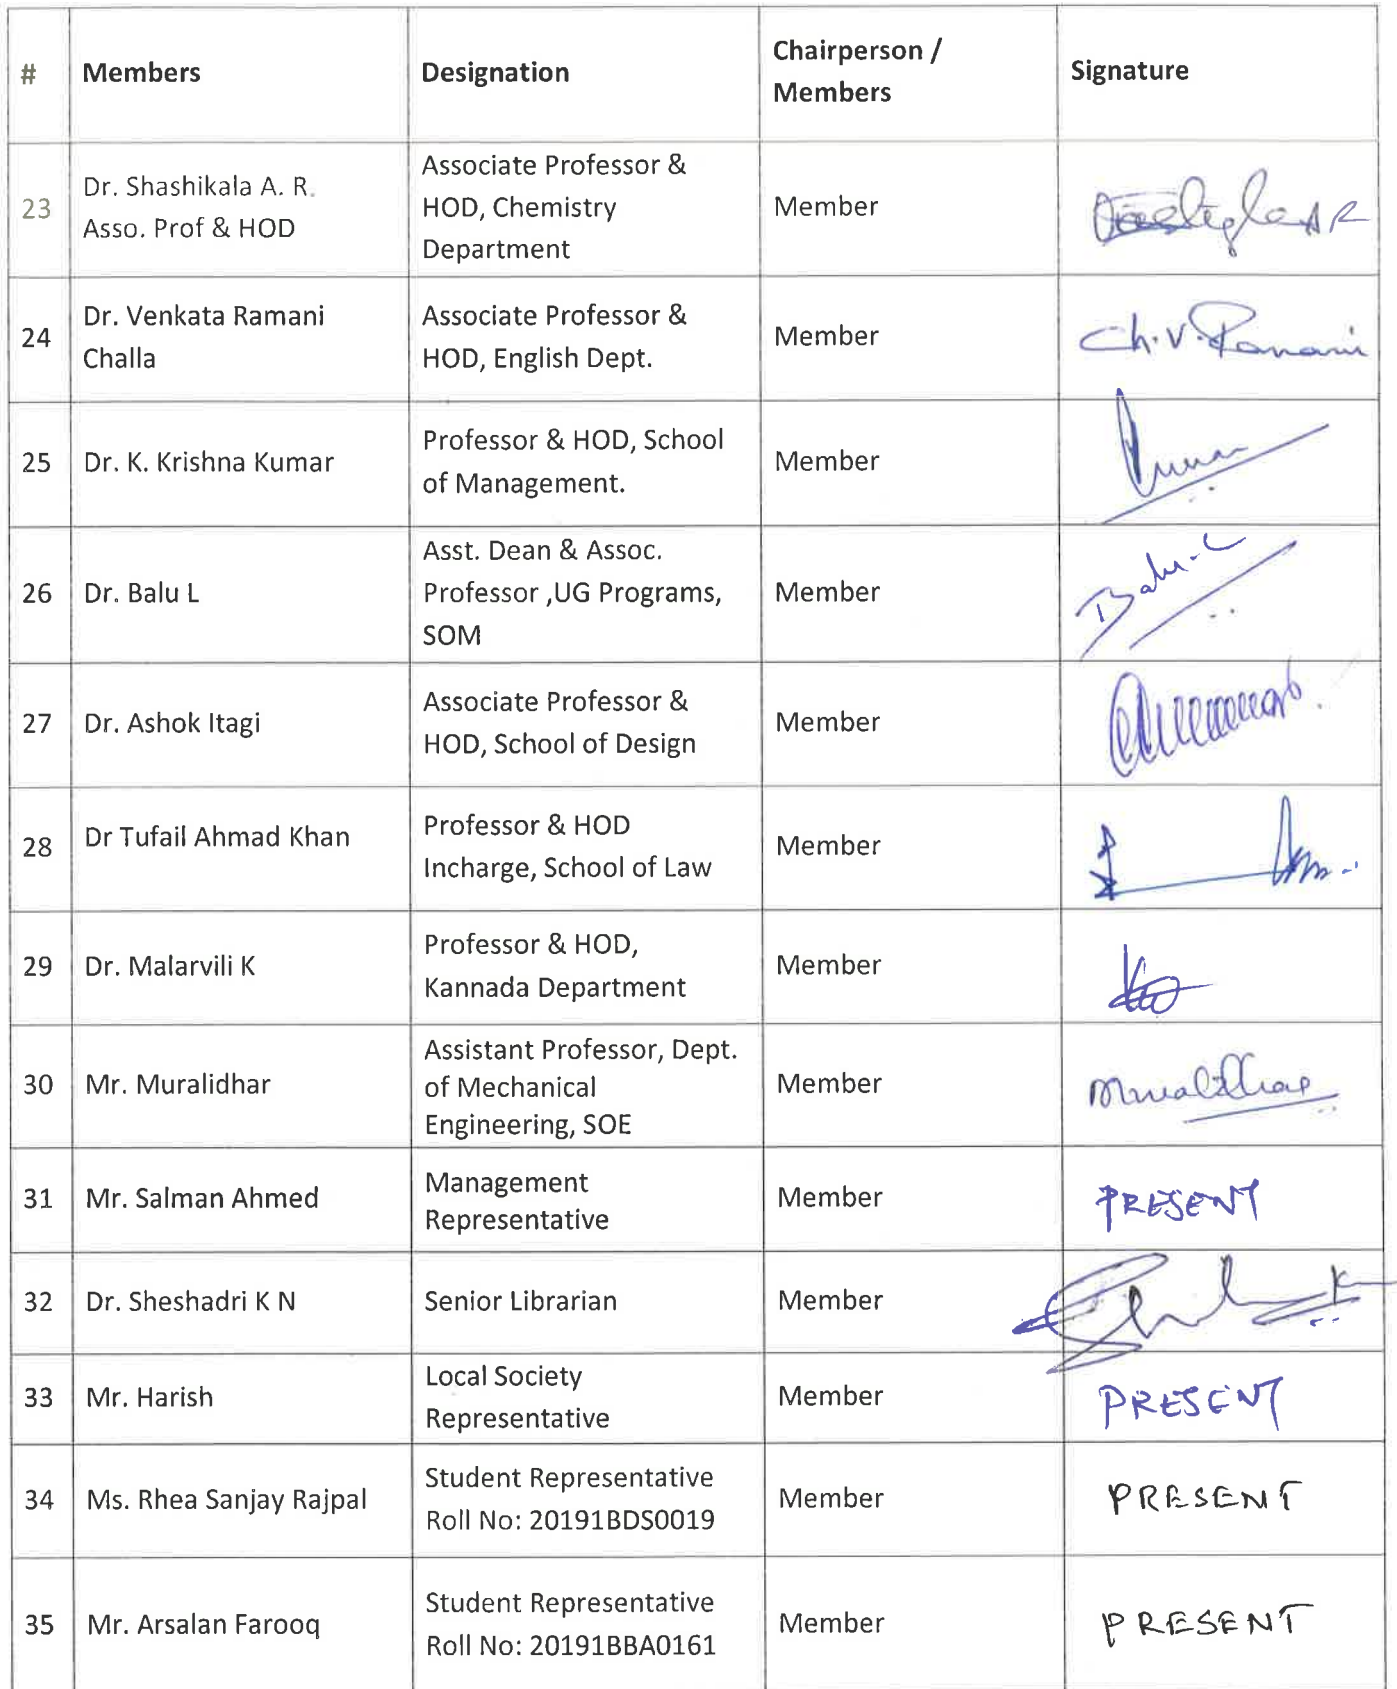 #
Members
Designation
Chairperson /
Members
Signature
23
Dr. Shashikala A. R.
Asso. Prof & HOD
Associate Professor &
HOD, Chemistry
Department
Member
24
Dr. Venkata Ramani
Challa
Associate Professor &
HOD, English Dept.
Member
Ch. V. Ramani
25
Dr. K. Krishna Kumar
Professor & HOD, School
of Management.
Member
26
Dr. Balu L
Asst. Dean & Assoc.
Professor ,UG Programs,
SOM
Member
Balu. L
27
Dr. Ashok Itagi
Associate Professor &
HOD, School of Design
Member
28
Dr Tufail Ahmad Khan
Professor & HOD
Incharge, School of Law
Member
29
Dr. Malarvili K
Professor & HOD,
Kannada Department
Member
30
Mr. Muralidhar
Assistant Professor, Dept.
of Mechanical
Engineering, SOE
Member
Muralidhar
31
Mr. Salman Ahmed
Management
Representative
Member
PRESENT
32
Dr. Sheshadri K N
Senior Librarian
Member
33
Mr. Harish
Local Society
Representative
Member
PRESENT
34
Ms. Rhea Sanjay Rajpal
Student Representative
Roll No: 20191BDS0019
Member
PRESENT
35
Mr. Arsalan Farooq
Student Representative
Roll No: 20191BBA0161
Member
PRESENT